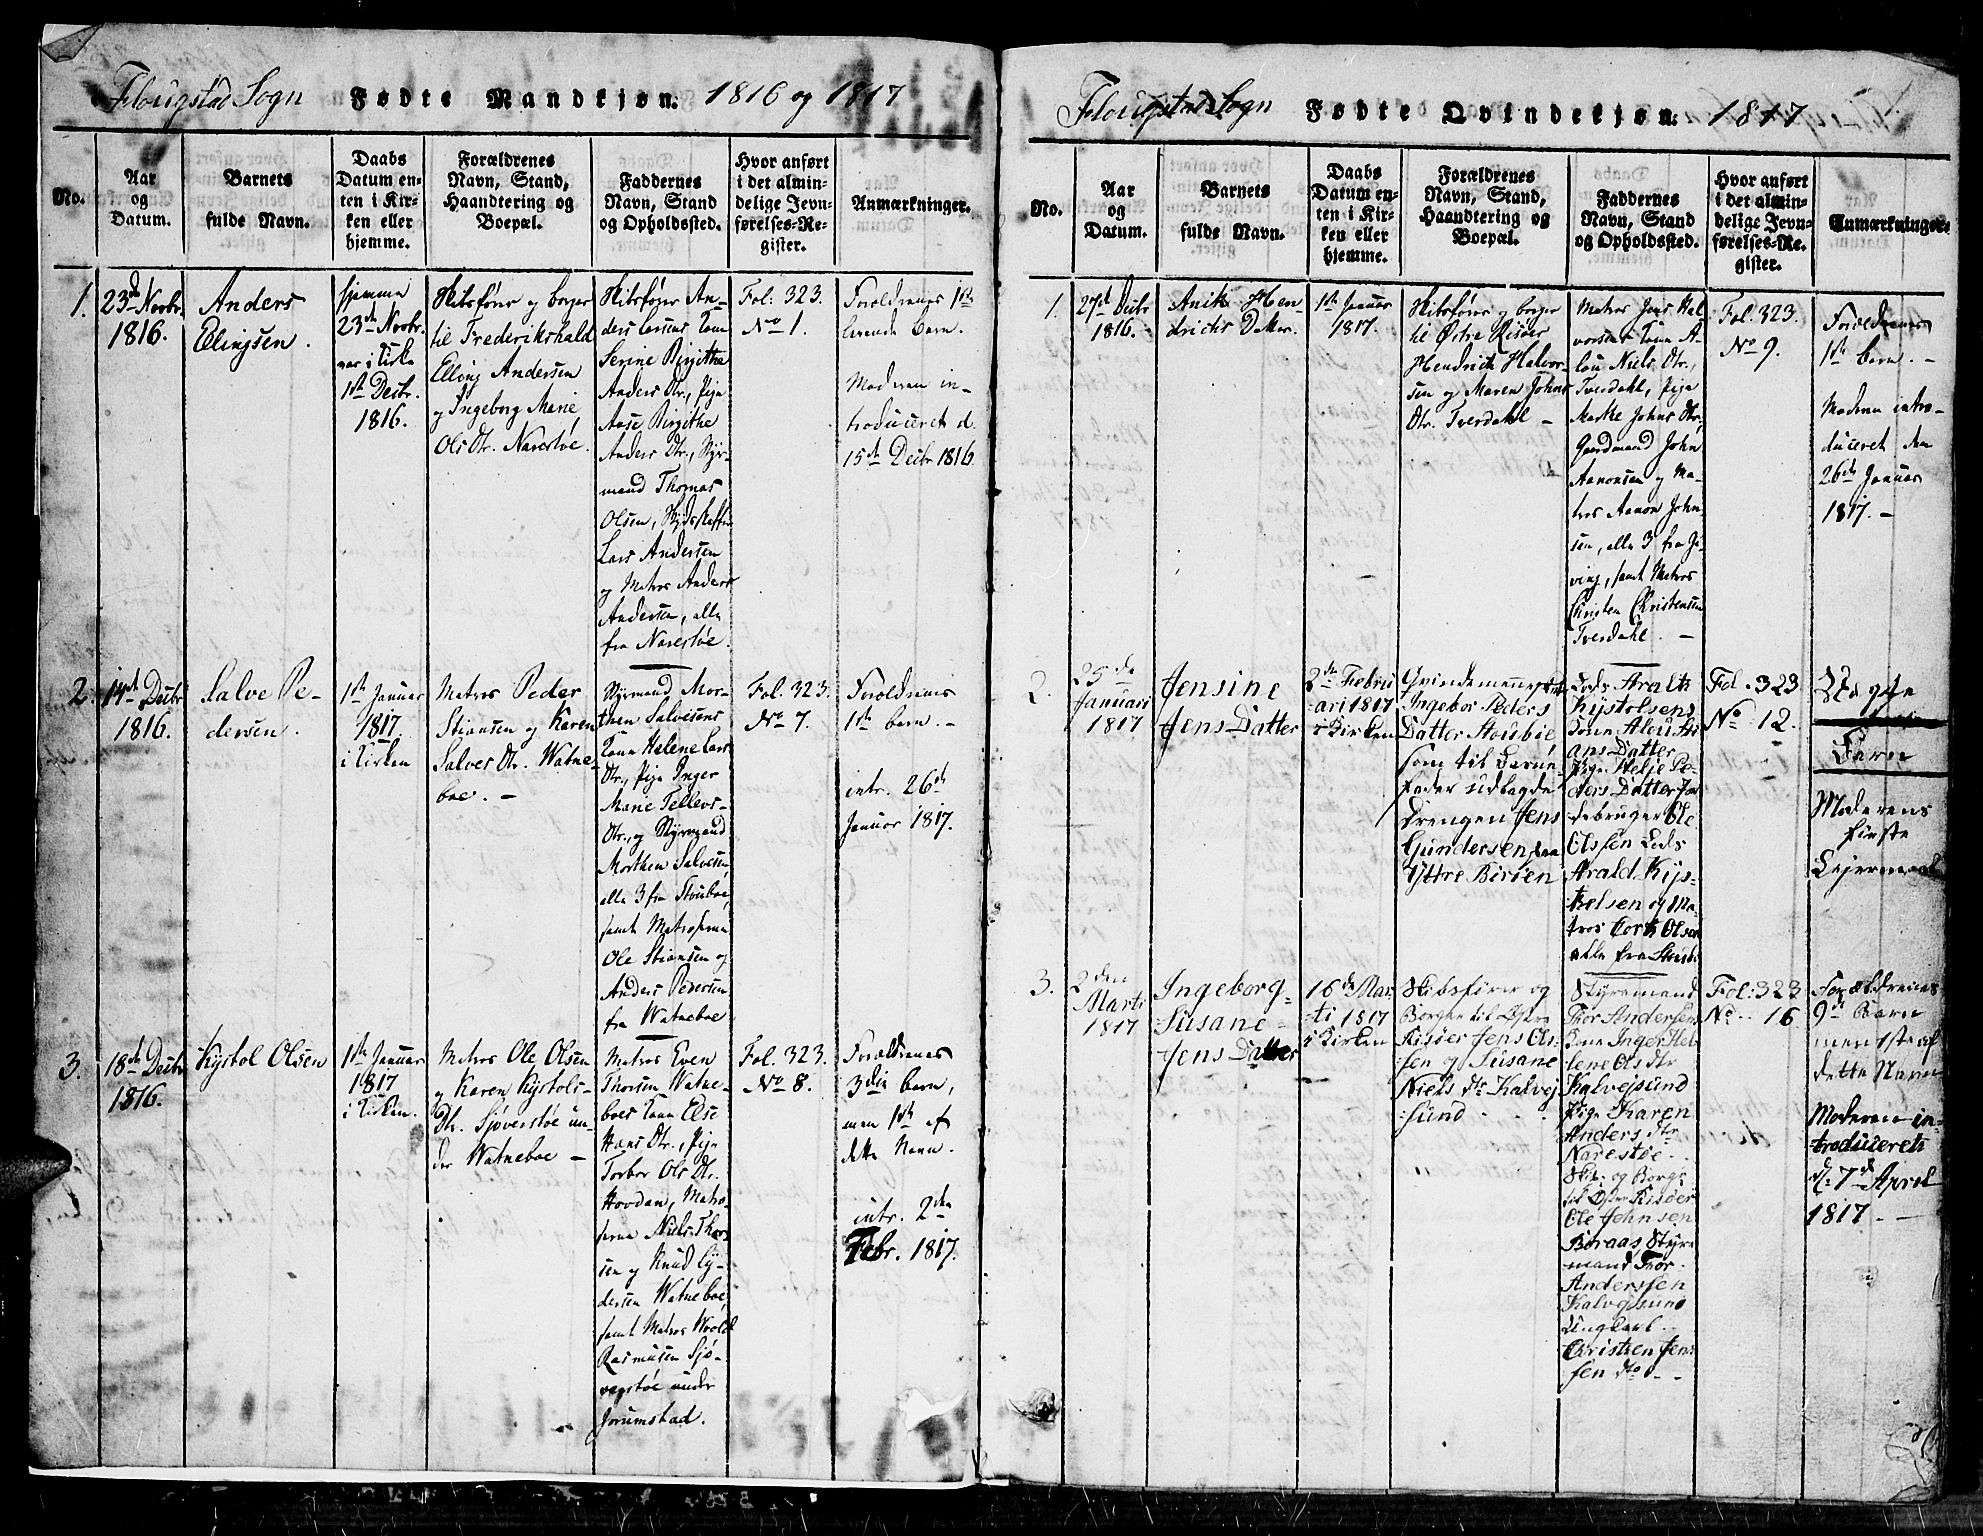 Flougstad Sogn Fødte Mandkjøn. 1816 og 1817
No.
Aar
og
Datum.
Barnets
fulde Navn.
Daabs
Datum en-
ten i Kir-
ken eller
hjemme.
Forældrenes
Navn, Stand,
Haandtering og
Boepæl.
Faddernes
Navn, Stand
og Opholdssted.
Hvor anført
i det almin-
delige Jevn-
førelses-Re-
gister.
Anmærkninger.
1.
23de Novbr.
1816.
Anders
Ellingsen.
hjemme
23de Novbr.
var i Kirke
1ste Decbr.
1816.
Skibsfører og borger
til Frederikshald
Elling Andersen
og Ingeborg Marie
Ols Dtr. Narestøe.
Skibsfører An-
ders Larsens Kone
Serine Birgithe
Anders Dtr., Pige
Aase Birgithe
Anders Dtr., Styr-
mand Thomas
Olsen,
Lars Andersen
og Matros Anders
Andersen, alle
fra Narestøe.
Fol. 323.
No 1.
Forældrenes 1ste
levende barn.
Moderen in-
troduceret d.
15de Decbr 1816.
2.
14de Decbr
1816.
Salve Pe-
dersen.
1ste Januar
1817.
i Kirken
Matros Peder
Stiansen og Karen
Salves Dtr. Watne-
boe. -
Styrmand Mor-
then Salvesens
Kone Helene Lars
Dtr., Pige Inger
Marie Tellevs-
Dtr., og Styrmand
Morthen Salvesen
alle 3 fra Stuboe,
samt Matroserne
Ole Stiansen og
Anders Pedersen
fra Watneboe.
Fol. 323.
No 7.
Forældrenes
1ste barn. -
intr. 26de
Januar 1817.
3.
18de Decbr
1816.
Kystol Olsen
1ste Januar
1817
i Kirken.
Matros Ole Olsen
og Karen Kystols-
Dtr. Sjøverstøe un-
der Watneboe -
Matros Even
Thorsen Watne-
boes Kone Else
Hans Dtr., Pige
Torbor Ols Dtr.
Hovdan, Matro-
serne Niels Thor-
sen og Knud Gy-
dersen Watneboe,
samt Matros Wrold
Rasmusen Sjø-
verstøe under
Jorumstad.
Fol. 323.
No 8.
Forældrenes
3die barn,
men 1ste af
dette Navn.
intr. 2den
Febr. 1817.
Flougstad Sogn Fødte Qvindekjøn: 1817 1.
No.
Aar
og
Datum.
Barnets
fulde Navn.
Daabs
Datum en-
ten i Kir-
ken eller
hjemme.
Forældrenes
Navn, Stand,
Haandtering og
Boepæl.
Faddernes
Navn, Stand
og Opholdssted.
Hvor anført
i det almin-
delige Jevn-
førelses-Re-
gister.
Anmærkninger.
1.
27de Decbr
1816.
Anik Hen-
drichs Datter.
1ste Januar
1817.
Skibsfører og borger
til Østre Risøer
Hendrich Halvor-
sen og Maren Johns
Dtr. Tverdahl -
Matros Jens Hal-
vorsens Kone A-
lou Niels Dtr.,
Tverdahl, Pige
Marthe Johns Dtr,
Gaardmand John
Aanonsen og Ma-
tros Aanon John-
sen, alle 3 fra Gi-
ving, samt Matros
Christen Christensen
Tverdahl. -
Fol. 323.
No 9.
Forældrenes
1ste barn. -
Moderen intro-
duceret den
26de Januar
1817. -
2.
25de
Januari
1817
Jensine
Jens Datter
2de Febru
ari 1817
i Kirken
Qvindemennesket
Ingebor Peders
Datter Stoubøe
som til Barne-
fader udlagde
Drengen Jens
Gundersen paa
Yttre Borøen
Lods Aralt
Kystolsens
Kone Alou Sti
ans Datter
Pige Helje Pe-
ders Datter Jor
debruger Ole
Olssen Lods
Arald Kys-
tolsen og Ma-
tros Olsen
alle fra
Fol. 323
No 12.
Uægte
Barn
Moderens
første
Leiermaal
3.
2den
Marti
1817
Ingeborg
Susane
Jens Datter
16de Mar-
ti 1817
i Kirken
Skibsfører og
Borger til Øster
Risøer Jens Ols-
sen og Susane
Niels dtr Kalvej-
sund
Styremand
Thor Andersens
Kone Inger He-
lene Ols dtr
Kalvejsund
Pige Karen
Anders dtr
Narestøe
Skip. og Borgr
til Øster Risøer
Ole Johnsen
Boraas Styre
mand Thor
Anderssen
Kalvejsund
Ungkarl
Christen Jens-
sen do -
Fol: 323
No 16
Forældrenes
9de Barn
men 1ste af
dette Navn
Moderen in-
troduceret
d. 7de April
1817. -